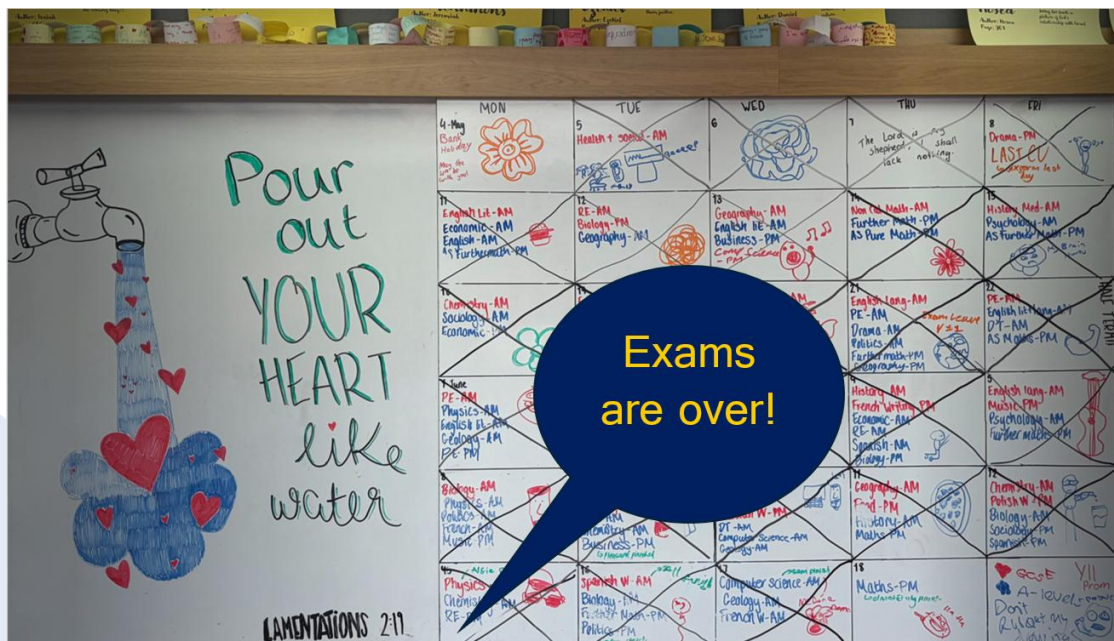 Author: Jeremiah
Author: Ezekiel
Author: Daniel
Author: Hosea
Pour
out
YOUR
HEART
like
water
LAMENTATIONS 2:19
MON
TUE
WED
THU
FRI
4-May
Bank
Holiday
5
Health + social - AM
6
7
The Lord is my
shepherd, I shall
lack nothing.
8
Drama-PM
LAST CU
11
English Lit-AM
Economic-AM
English-AM
AS Furthermath-PM
12
RE-AM
Biology-PM
Geography-AM
13
Geography-AM
English lit-AM
Business-PM
Comp Science
-PM
14
Non Cal Math-AM
Further Math-PM
AS Pure Math-PM
15
History Med-AM
Psychology-AM
AS Further Math-PM
Chemistry-AM
Sociology-AM
Economic-PM
21
English Lang-AM
PE-AM
Drama-AM
Politics-AM
Furthermath-PM
Geography-PM
Exam Leave
Y11
22
PE-AM
English lit+lang-AM
DT-AM
AS Maths-PM
HALF TERM
1 June
PE-AM
Physics-AM
English lit-AM
Geology-AM
PE-PM
History-AM
French Writing-PM
Economic-AM
RE-AM
Spanish-AM
Biology-PM
5
English lang-AM
Music-PM
Psychology-AM
Further math-PM
8
Biology-AM
Physics-AM
Politics-AM
French-AM
Music-PM
Chemistry-AM
Business-PM
W-PM
DT-AM
Computer Science-AM
Geology-AM
11
Geography-AM
Food-PM
History-AM
Maths-PM
12
Chemistry-AM
Polish W-PM
Biology-AM
Sociology-AM
Spanish-PM
15
Physics
Chemistry-AM
RE
16
Spanish W-AM
Biology
Further Math-PM
Politics-PM
17
Computer Science-AM
Geology-AM
French W-AM
18
Maths-PM
GCSE
A-levels
Y11
Prom
Don't
my
Exams
are over!